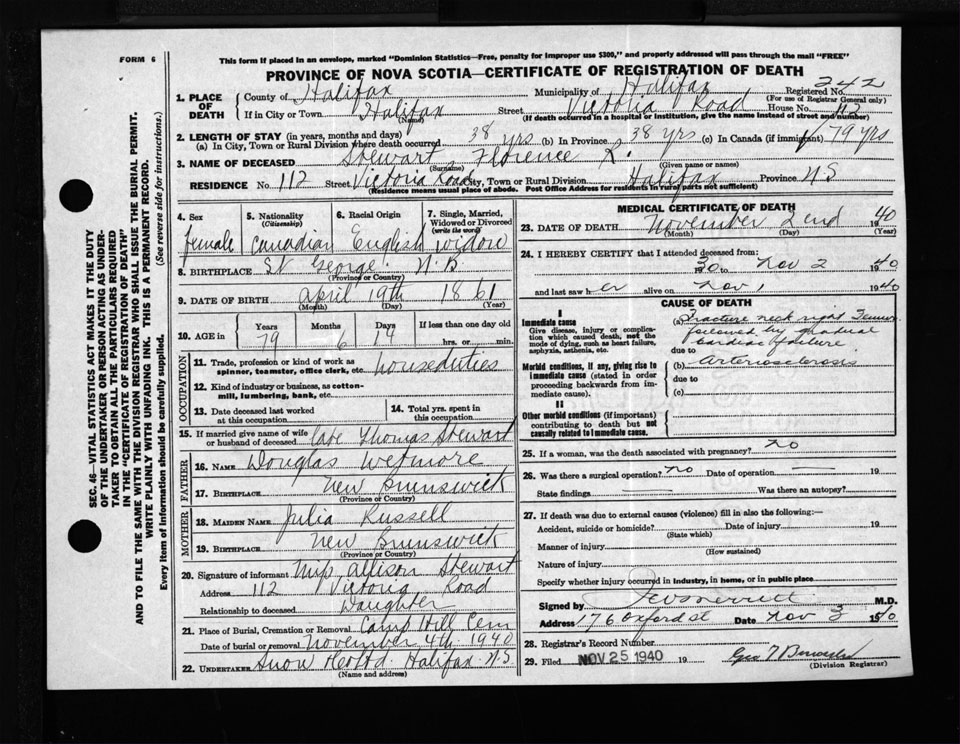 FORM 6
This form if put in an envelope, marked "Dominion Statistics—Free, penalty for improper use $300," and properly addressed will pass through the mail "FREE"
PROVINCE OF NOVA SCOTIA—CERTIFICATE OF REGISTRATION OF DEATH
SEC. 46—VITAL STATISTICS ACT MAKES IT THE DUTY
OF THE UNDERTAKER OR PERSON ACTING AS UNDER-
TAKER TO OBTAIN ALL THE PARTICULARS REQUIRED
IN THE "CERTIFICATE OF REGISTRATION OF DEATH"
AND TO FILE THE SAME WITH THE DIVISION REGISTRAR WHO SHALL ISSUE THE BURIAL PERMIT.
WRITE PLAINLY WITH UNFADING INK. THIS IS A PERMANENT RECORD.
Every item of information should be carefully supplied. (See reverse side for instructions.)
1. PLACE OF DEATH
County of Halifax Municipality of Halifax Registered No. 242
(For use of Registrar General only)
If in City or Town Halifax Street Victoria Road House No. 112
(Name) (If death occurred in a hospital or institution, give the name instead of street and number)
2. LENGTH OF STAY (in years, months and days)
(a) In City, Town or Rural Division where death occurred 38 yrs (b) In Province 38 yrs (c) In Canada (if immigrant) 79 yrs
3. NAME OF DECEASED Stewart, Florence R.
(Surname) (Given name or names)
RESIDENCE No. 112 Street Victoria Road City, Town or Rural Division Halifax Province N.S
(Residence means usual place of abode. Post Office Address for residents in rural parts not sufficient)
4. Sex female
5. Nationality (Citizenship) Canadian
6. Racial Origin English
7. Single, Married, Widowed or Divorced (write the word) widow
8. BIRTHPLACE St George N.B.
(Province or Country)
9. DATE OF BIRTH April 19th 1861
(Month) (Day) (Year)
10. AGE in Years 79 Months 6 Days 14 If less than one day old hrs. or min.
OCCUPATION
11. Trade, profession or kind of work as spinner, teamster, office clerk, etc. houseduties
12. Kind of industry or business, as cotton-mill, lumbering, bank, etc.
13. Date deceased last worked at this occupation
14. Total yrs. spent in this occupation
15. If married give name of wife or husband of deceased late Thomas Stewart
FATHER
16. NAME Douglas Wetmore
17. BIRTHPLACE New Brunswick
(Province or Country)
MOTHER
18. MAIDEN NAME Julia Russell
19. BIRTHPLACE New Brunswick
(Province or Country)
20. Signature of informant Mrs Allison Stewart
Address 112 Victoria Road
Relationship to deceased Daughter
21. Place of Burial, Cremation or Removal Camp Hill Cem
Date of burial or removal November 4th 1940
22. UNDERTAKER Snow Halifax N.S.
(Name and address)
MEDICAL CERTIFICATE OF DEATH
23. DATE OF DEATH November 2end 1940
(Month) (Day) (Year)
24. I HEREBY CERTIFY that I attended deceased from:
30 to Nov 2 1940
and last saw her alive on Nov 1 1940
CAUSE OF DEATH
I
Immediate cause
Give disease, injury or complication which caused death, not the mode of dying, such as heart failure, asphyxia, asthenia, etc.
(a) Fracture neck right Femur
followed by gradual
cardiac failure
due to
Morbid conditions, if any, giving rise to immediate cause (stated in order proceeding backwards from immediate cause).
(b) Arteriosclerosis
due to
(c)
II
Other morbid conditions (if important) contributing to death but not causally related to immediate cause.
25. If a woman, was the death associated with pregnancy? no
26. Was there a surgical operation? no Date of operation — 19
State findings — Was there an autopsy? —
27. If death was due to external causes (violence) fill in also the following:—
Accident, suicide or homicide? Date of injury 19
(State which)
Manner of injury
(How sustained)
Nature of injury
Specify whether injury occurred in industry, in home, or in public place
Signed by M.D.
Address 176 Oxford St Date Nov 3 1940
28. Registrar's Record Number
29. Filed NOV 25 1940 19 Geo T
(Division Registrar)